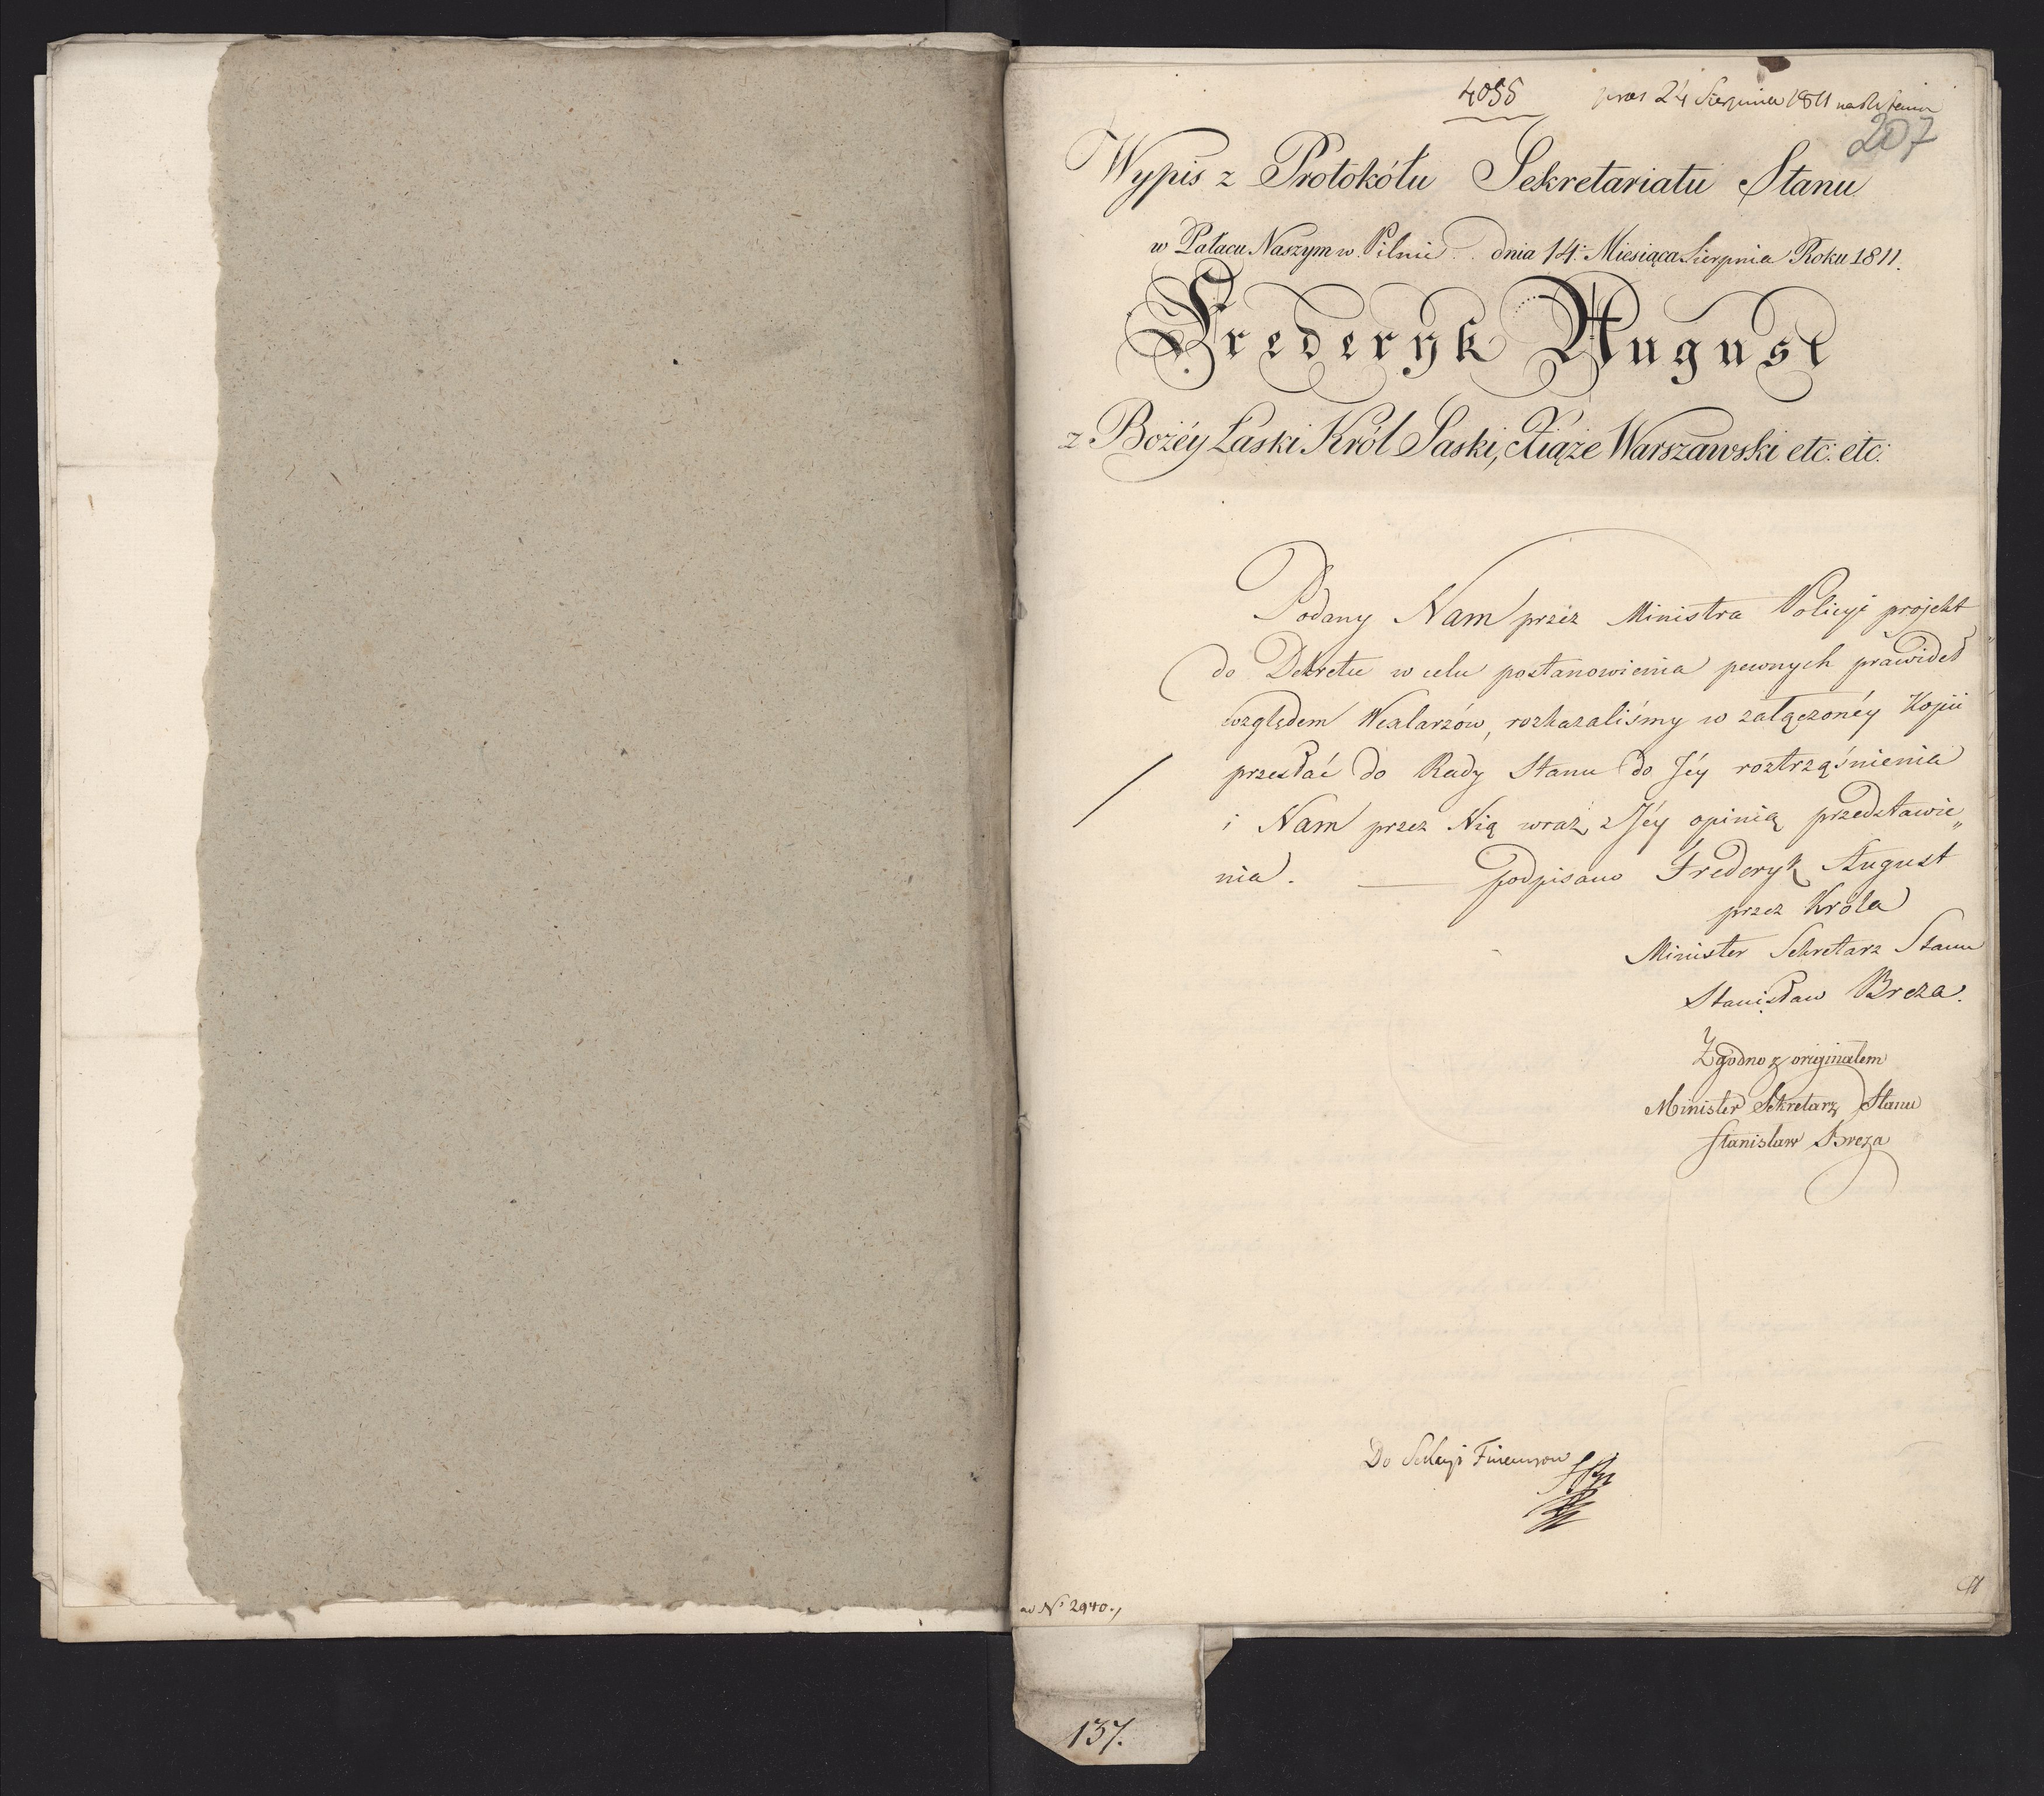 4055 pras 24 Sierpnia 1811
207
Wypis z Protokółu Sekretariatu Stanu
w Pałacu Naszym w Pilnie dnia 14: Miesiąca Sierpnia Roku 1811.
Frederyk August
z Bożéy Łaski Król Saski, Xiąże Warszawski etc: etc:
Podany Nam przez Ministra Policyi projekt
do Dekretu w celu postanowienia pewnych prawideł
względem Wexlarzów, rozkazaliśmy w załączonéy Kopii
przesłać do Rady Stanu do Jéy roztrząśnienia
i Nam przez Nią wraz z Jéy opinią przedstawie„
nia. — podpisano Frederyk August
przez Króla
Minister Sekretarz Stanu
Stanisław Breza.
Zgodno z originałem
Minister Sekretarz Stanu
Stanisław Breza
Do Sekcyi Finansow
ad Nº 2940.
137.